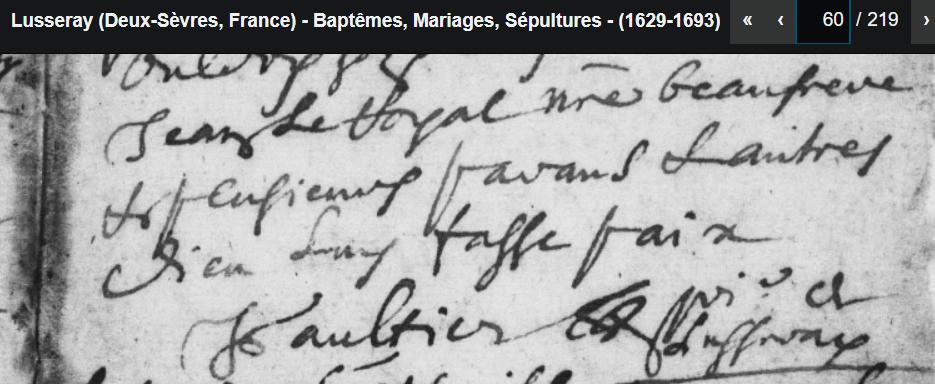 Lusseray (Deux-Sèvres, France) - Baptêmes, Mariages, Sépultures - (1629-1693) « ‹ 60 / 219 ›
Jean Le Royal nre beaufrere
& plusieurs scavans & autres
Dieu luy fasse paix
Gaultier prieur de
Lusseray